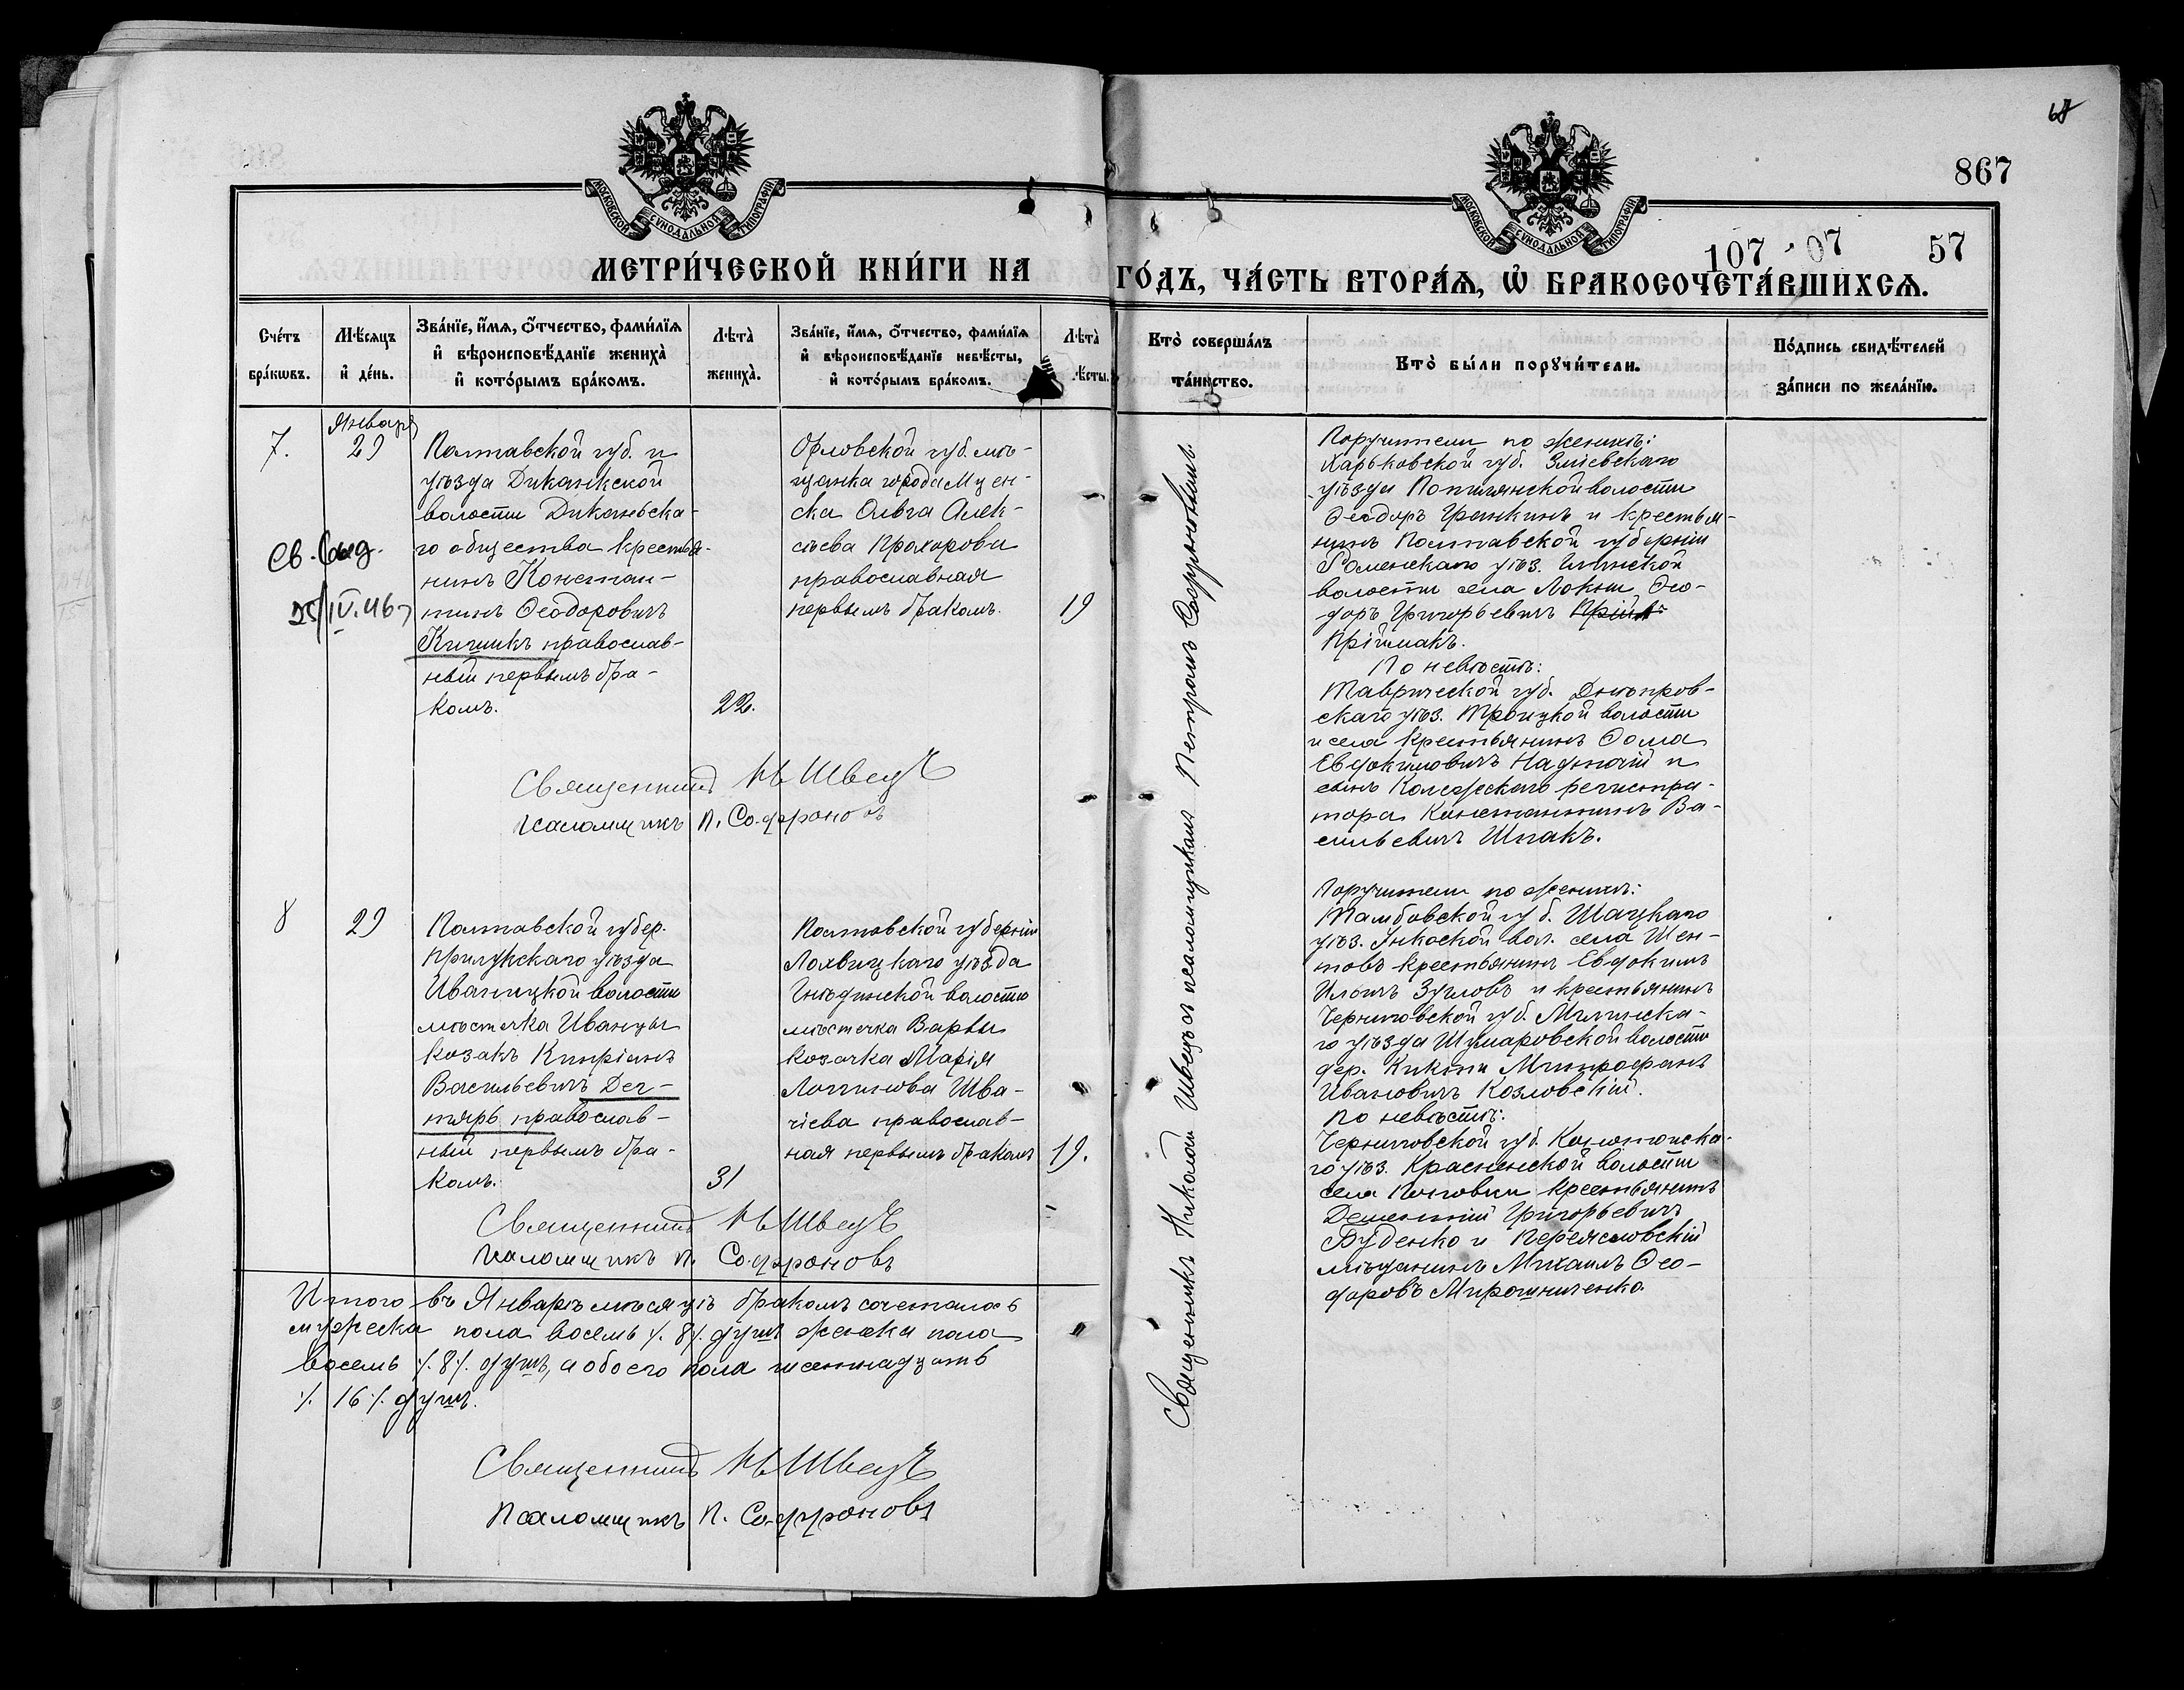 68
867
МОСКОВСКОЙ СѴНОДАЛЬНОЙ ТИПОГРАФІИ
МОСКОВСКОЙ СѴНОДАЛЬНОЙ ТИПОГРАФІИ
107 07 57
МЕТРИ́ЧЕСКОЙ КНИ́ГИ НА ГО́ДЪ, ЧА́СТЬ ВТОРА́Ѧ, Ѡ҆ БРАКОСОЧЕТА́ВШИХСѦ.
Сче́тъ бра́кѡвъ.
Мѣ́сѧцъ и҆ де́нь.
Зва́нїе, и҆́мѧ, ѻ҆́тчество, фами́лїѧ и҆ вѣроисповѣ́данїе жениха̀ и҆ кото́рымъ бра́комъ.
Лѣта̀ жениха̀.
Зва́нїе, и҆́мѧ, ѻ҆́тчество, фами́лїѧ и҆ вѣроисповѣ́данїе невѣ́сты, и҆ кото́рымъ бра́комъ.
Лѣта̀ ѣ́сты.
Кто̀ соверша́лъ та́инство.
Кто̀ бы́ли порꙋчи́тели.
По́дпись свидѣ́телей за́писи по жела́нїю.
7.
Января
29
Св. выд.
25/IV.46
Полтавской губ. и
уѣзда Диканской
волости Диканьска-
го общества крестья-
нинъ Констан-
тинъ Ѳеодоровичъ
Кишикъ православ-
ный первымъ бра-
комъ.
22.
Орловской губ. мѣ-
щанка города Мцен-
ска Ольга Алек-
сѣева Прохорова
православная
первымъ бракомъ.
19
Священникъ Н Швецъ
Псаломщикъ П. Соффроновъ
Священникъ Николай Швецъ съ псаломщикомъ Петромъ Соффроновымъ
Поручители по женихѣ:
Харьковской губ. Зміевскаго
уѣзда волости
Ѳеодоръ Гранкинъ и крестья-
нинъ Полтавской губерніи
Роменскаго уѣз.
волости села Локни Ѳео-
доръ Григорьевичъ
Прійmakъ.
По невѣстѣ:
Таврической губ. Днѣпров-
скаго уѣз. Троицкой волости
и села крестьянинъ Ѳома
Евдокимовичъ Надточій и
сынъ Коллежскаго регистра-
тора Константинъ Ва-
сильевичъ Шпакъ.
8
29
Полтавской губер.
Прилукскаго уѣзда
Иваницкой волости
мѣстечка Иваницы
козакъ Кипріанъ
Васильевичъ Дег-
тярь православ-
ный первымъ бра-
комъ.
31
Полтавской губерніи
Лохвицкаго уѣзда
Гнѣдинской волости
мѣстечка Варвы
козачка Марія
Логгинова Шва-
чіева православ-
ная первымъ бракомъ
19.
Священникъ Н Швецъ
Псаломщикъ П. Соффроновъ
Поручители по женихѣ:
Тамбовской губ. Шацкаго
уѣз. вол. села Шен-
товъ крестьянинъ Евдокимъ
Ильичъ и крестьянинъ
Черниговской губ. Мглинска-
го уѣзда Шумаровской волости
дер. Митрофанъ
Ивановичъ Козловскій.
По невѣстѣ:
Черниговской губ. Конотопска-
го уѣз. Красненской волости
села Поповки крестьянинъ
Дементій Григорьевичъ
Буденко и Переясловскій
мѣщанинъ Михаилъ Ѳео-
доровъ Мирошниченко.
Итого въ Январѣ мѣсяцѣ бракомъ сочеталось
мужеска пола восемь /. 8 /. душъ женска пола
восемь /. 8 /. душъ, а обоего пола шестнадцать
/. 16 /. душъ.
Священникъ Н Швецъ
Псаломщикъ П. Соффроновъ